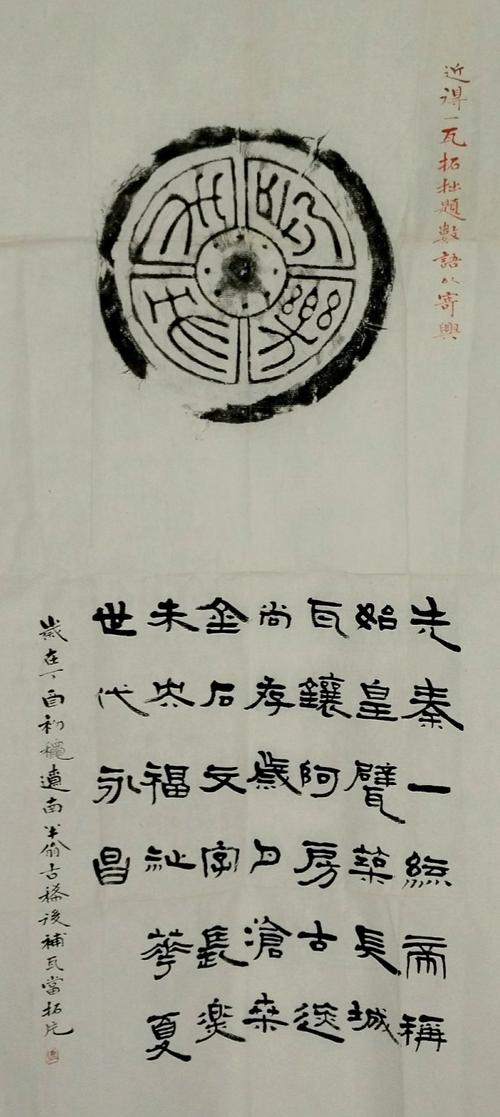 近得一瓦拓拙題數語以寄興
長樂未央
先秦一統帝稱
始皇甓築長城
瓦鑲阿房古迹
尚存歲月滄桑
金石文字長樂
未央福祉華夏
世代永昌
歲在丁酉初穐南半古稀後補瓦當拓片